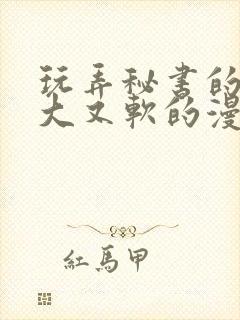 玩弄秘书的
大又軟的漫
紅馬甲